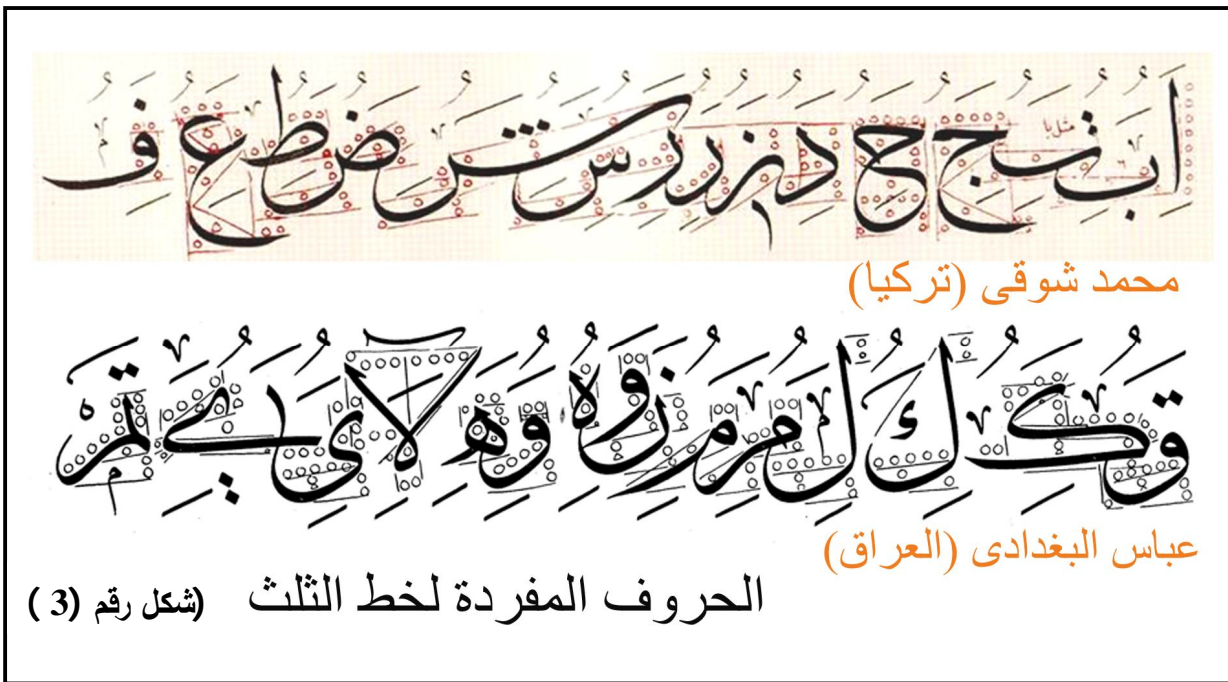 ا ب ت ج ح د ز ر ر س ش ض ط ع ف
محمد شوقى (تركيا)
ق ك ك ل م م ز و ه و ه لا ى ے تم
عباس البغدادى (العراق)
الحروف المفردة لخط الثلث (شكل رقم (3 )